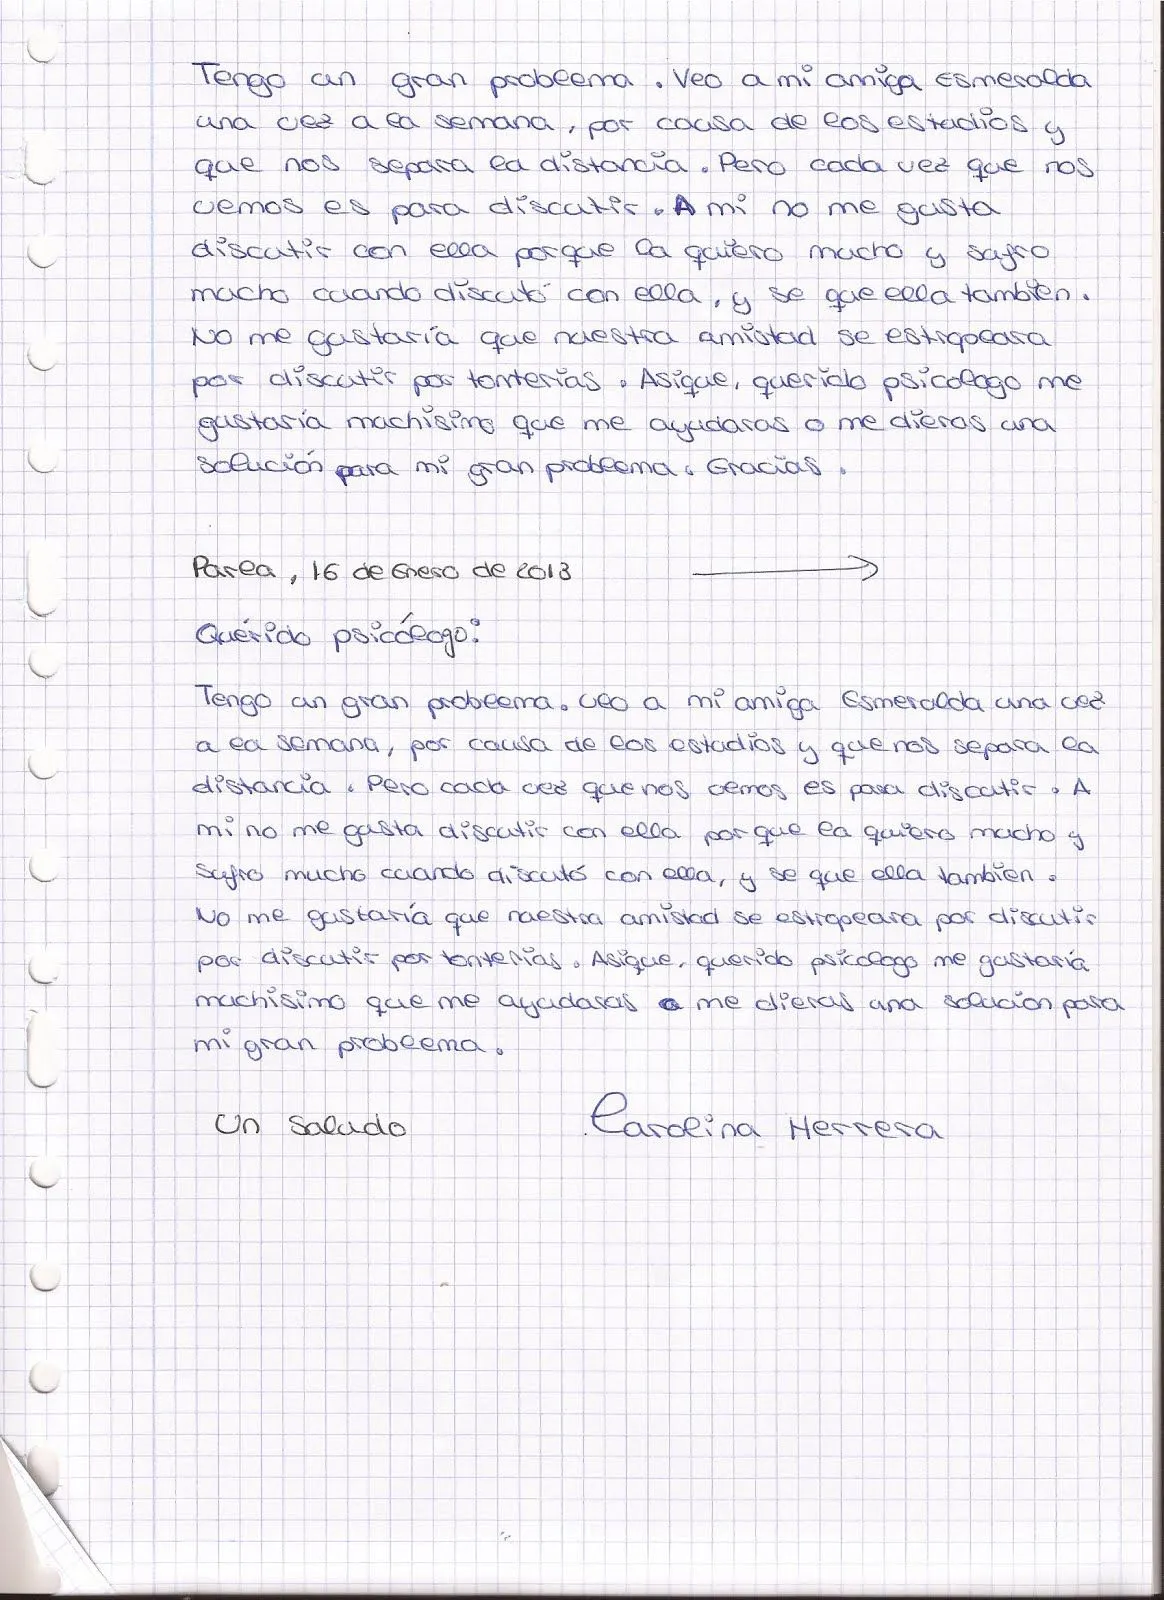 Tengo un gran problema. Veo a mi amiga Esmeralda
una vez a la semana, por causa de los estudios y
que nos separa la distancia. Pero cada vez que nos
vemos es para discutir. A mi no me gusta
discutir con ella porque la quiero mucho y sufro
mucho cuando discuto con ella, y se que ella tambien.
No me gustaría que nuestra amistad se estropeara
por discutir por tonterias. Asique, querido psicologo me
gustaría muchisimo que me ayudaras o me dieras una
solución para mi gran problema. Gracias.
Parla, 16 de Enero de 2013
Querido psicólogo:
Tengo un gran problema. Veo a mi amiga Esmeralda una vez
a la semana, por causa de los estudios y que nos separa la
distancia. Pero cada vez que nos vemos es para discutir. A
mi no me gusta discutir con ella por que la quiero mucho y
sufro mucho cuando discuto con ella, y se que ella tambien.
No me gustaría que nuestra amistad se estropeara por discutir
por discutir por tonterias. Asique, querido psicologo me gustaria
muchisimo que me ayudaras o me dieras una solucion para
mi gran problema.
Un Saludo Carolina Herrera